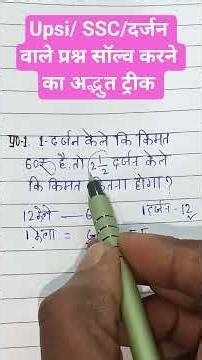 Upsi/ SSC/दर्जन
वाले प्रश्न सॉल्व करने
का अद्भुत ट्रीक
प्र0-1. 1-दर्जन केले कि किमत
60रु है. तो 2 1/2 दर्जन केले
कि किमत कितना होगा?
12 केले — 6 1 दर्जन - 12
1 केला =